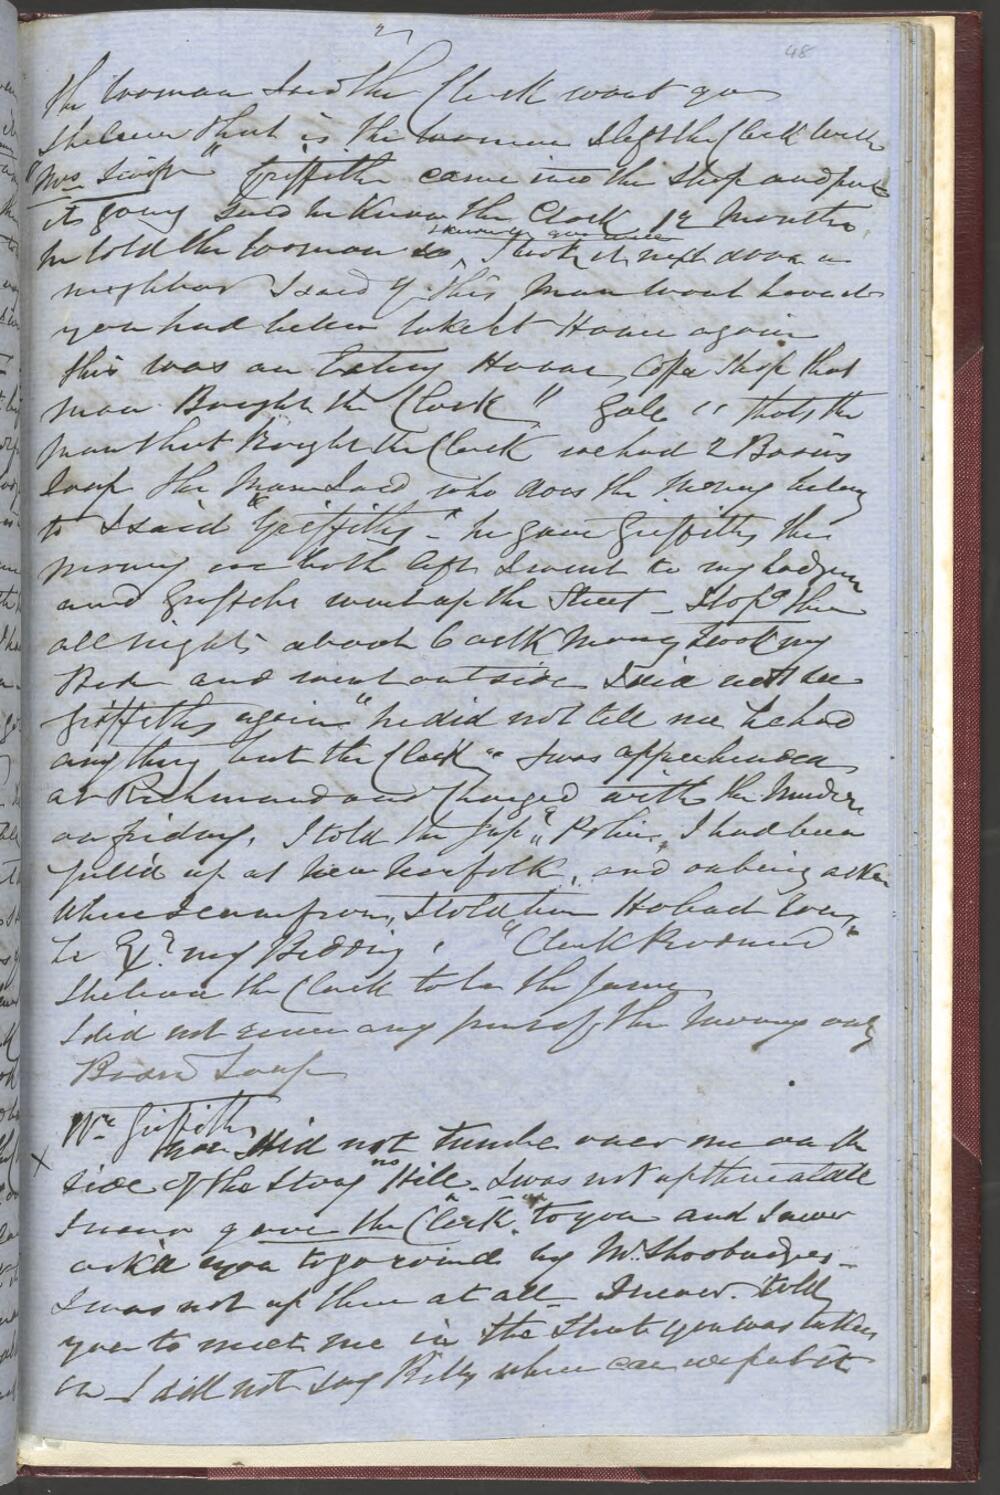 48
the woman said the Clock wont go
I believe that is the woman I left the Clock with
"Mrs " Griffiths came into the Shop and put
it going said he knew the Clock 12 Months
he told the woman so, I took it next door a
neighbor I said if this Man wont have it
you had better take it Home again
this was an Eating House, Coffee Shop that
man Bought the Clock " Gale " thats the
man that Bought the Clock we had 2 Basins
Soup the Man said who does the Money belong
to I said "Griffiths" - he gave Griffiths the
money we both left I went to my Lodgin
and Griffiths went up the Street - I stopd there
all night about 6 oclk Morng I took my
Bed and went outside I did not see
Griffiths again" he did not tell me he had
any thing but the Clock " I was apprehended
at Richmond and Charged with the Murder
on Friday. I told the Police, I had been
pull'd up at New Norfolk, and on being asked
Where I came from, I told him Hobart Town
he Exd my Bedding, "Clock Produced"
I believe the Clock to be the Same
I did not receive any part of the Money only
Basin Soup
Wm Griffiths
x you did not tumble over me on the
side of the Stony Hill. I was not up there at all
I never gave the "Clock" to you and I never
ask'd you to go round by Mr Shoobridges -
I was not up there at all - I never told
you to meet me in the Street you was taken
in I did not say Billy where can we put it